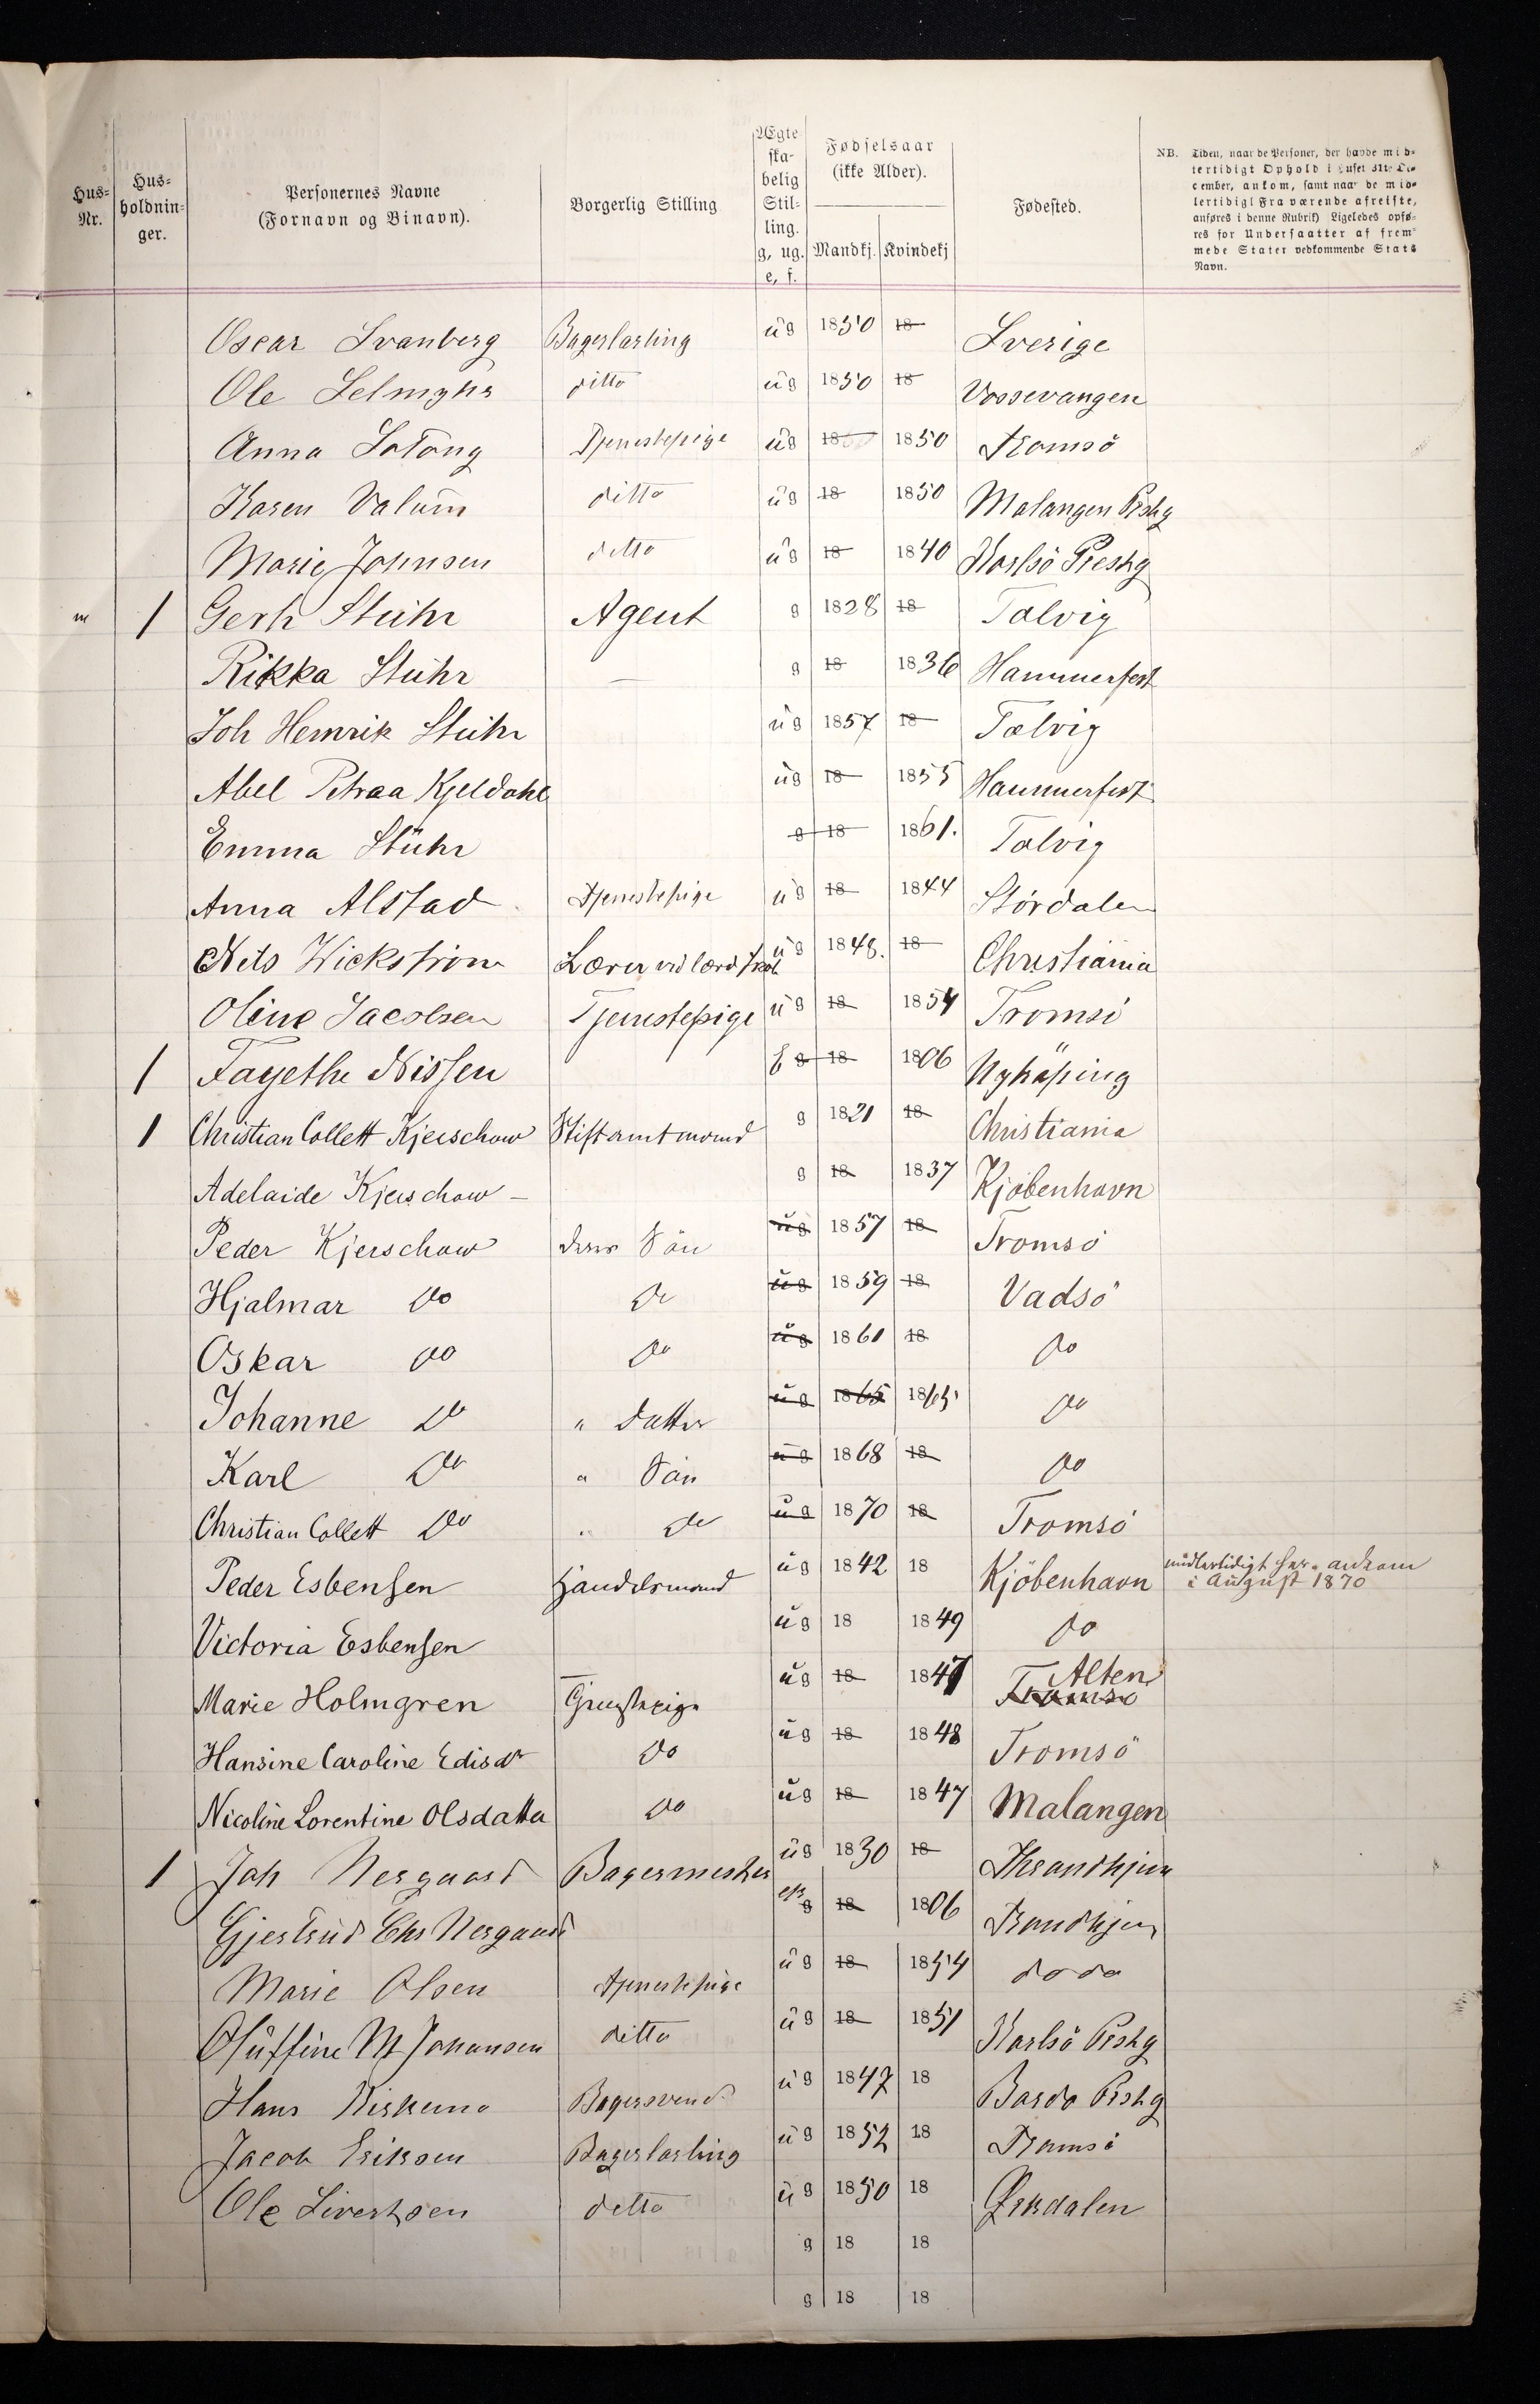 Hus-Nr.
Hus-holdnin-ger.
Personernes Navne (Fornavn og Binavn).
Borgerlig Stilling
Ægte ska-belig Stil-ling. g, ug. e, f.
Fødselsaar (ikke Alder).
Mandkj. Kvindekj
Fødested.
NB. Tiden, naar de Personer, der havde mid-
lertidigt Ophold i Huset 31te De-
cember, ankom, samt naar de mid-
lertidigt Fraværende afreiste,
anføres i denne Rubrik) Ligeledes opfø-
res for Undersaatter af frem-
mede Stater vedkommende Stats
Navn.
Oscar Svanberg Bagerlærling ug 1850 18 Sverige
Ole Selmyhr ditto ug 1850 18 Vossevangen
Anna Tjenestepige ug 18 1850 Tromsö
Karen Valum ditto ug 18 1850 Malangen Prstg
Marie Johnsen ditto ug 18 1840 Karlsö Prestg
1 Gerh Stuhr Agent g 1828 18 Talvig
Rikka Stuhr — g 18 1836 Hammerfest
Joh Henrik Stuhr ug 1857 18 Talvig
Abel Petraa Kjeldahl ug 18 1855 Hammerfest
Emma Stuhr g 18 1861. Talvig
Anna Alstad Tjenestepige ug 18 1844 Stördalen
Nils Wickström Lærer ved lærd Skole ug 1848. 18 Christiania
Oline Jacobsen Tjenestepige ug 18 1854 Tromsö
1 Fayethe Nissen g 18 1806 Nyköping
1 Christian Collett Kjerschow Stiftamtmand g 1821 18 Christiania
Adelaide Kjerschow – g 18 1837 Kjöbenhavn
Peder Kjerschow deres Sön ug 1857 18 Tromsö
Hjalmar Do Do ug 1859 18 Vadsö
Oskar Do Do ug 1861 18 Do
Johanne Do " Datter ug 1865 1865 Do
Karl Do " Sön ug 1868 18 Do
Christian Collett Do " Do ug 1870 18 Tromsö
Peder Esbensen Handelsmand ug 1842 18 Kjöbenhavn midlertidigt her. ankom
i August 1870
Victoria Esbensen ug 18 1849 Do
Marie Holmgren Tjenestepige ug 18 1847 Tromsö Alten
Hansine Caroline Edisdr Do ug 18 1848 Tromsö
Nicoline Lorentine Olsdatter Do ug 18 1847 Malangen
1 Joh Nergaard Bagermester ug 1830 18 Throndhjem
Gjertrud Chr Nergaard g 18 1806 Trondhjem
Marie Olsen Tjenestepige ug 18 1854 do do
Oluffine M Johansen ditto ug 18 1851 Karlsö Prstg
Hans Kiskemo Bagersvend ug 1847 18 Bardo Prstg
Jacob Eriksen Bagerlærling ug 1852 18 Tromsö
Ole Sivertsen ditto ug 1850 18 Ørkdalen
g 18 18
g 18 18